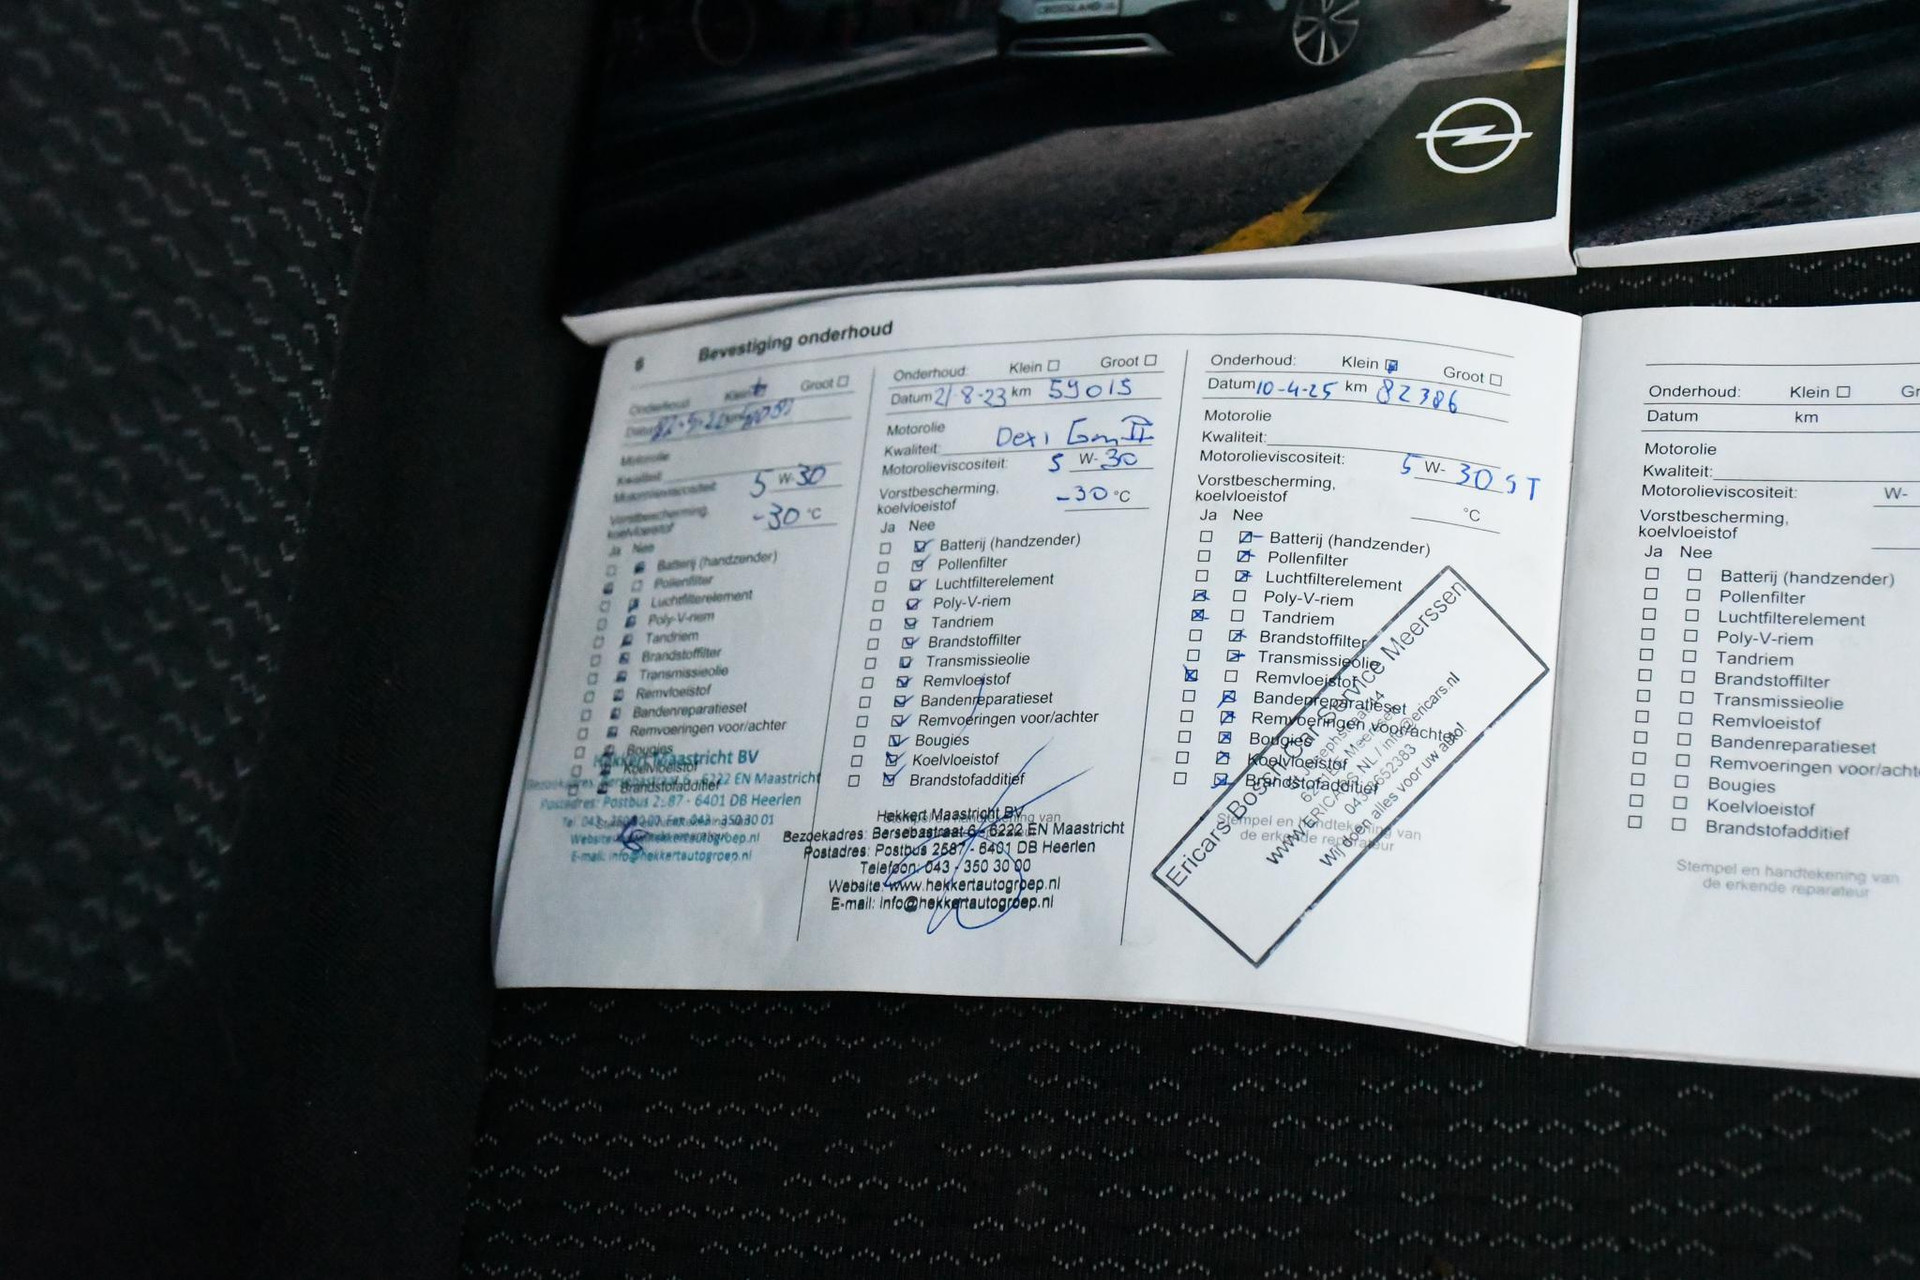 CROSSLAND
6 Bevestiging onderhoud
Onderhoud: Klein Groot
Datum
Motorolie
Kwaliteit:
Motorolieviscositeit: 5 W- 30
Vorstbescherming,
koelvloeistof -30 °C
Ja Nee
Batterij (handzender)
Pollenfilter
Luchtfilterelement
Poly-V-riem
Tandriem
Brandstoffilter
Transmissieolie
Remvloeistof
Bandenreparatieset
Remvoeringen voor/achter
Bougies
Koelvloeistof
Brandstofadditief
Hekkert Maastricht BV
Bezoekadres: Bersebastraat 6 - 6222 EN Maastricht
Postadres: Postbus 2587 - 6401 DB Heerlen
Website: www.hekkertautogroep.nl
E-mail: info@hekkertautogroep.nl
Onderhoud: Klein Groot
Datum 21-8-23 km 59015
Motorolie
Kwaliteit: Dexi Gen II
Motorolieviscositeit: 5 W- 30
Vorstbescherming,
koelvloeistof -30 °C
Ja Nee
Batterij (handzender)
Pollenfilter
Luchtfilterelement
Poly-V-riem
Tandriem
Brandstoffilter
Transmissieolie
Remvloeistof
Bandenreparatieset
Remvoeringen voor/achter
Bougies
Koelvloeistof
Brandstofadditief
Hekkert Maastricht BV
Bezoekadres: Bersebastraat 6 - 6222 EN Maastricht
Postadres: Postbus 2587 - 6401 DB Heerlen
Telefoon: 043 - 350 30 00
Website: www.hekkertautogroep.nl
E-mail: info@hekkertautogroep.nl
Onderhoud: Klein Groot
Datum 10-4-25 km 82386
Motorolie
Kwaliteit:
Motorolieviscositeit: 5 W- 30 ST
Vorstbescherming,
koelvloeistof °C
Ja Nee
Batterij (handzender)
Pollenfilter
Luchtfilterelement
Poly-V-riem
Tandriem
Brandstoffilter
Transmissieolie
Remvloeistof
Bandenreparatieset
Remvoeringen voor/achter
Bougies
Koelvloeistof
Brandstofadditief
Stempel en handtekening van
de erkende reparateur
Ericars Bosch Car Service Meerssen
www.ERICARS.NL / info@ericars.nl
wij doen alles voor uw auto!
Onderhoud: Klein
Datum km
Motorolie
Kwaliteit:
Motorolieviscositeit: W-
Vorstbescherming,
koelvloeistof
Ja Nee
Batterij (handzender)
Pollenfilter
Luchtfilterelement
Poly-V-riem
Tandriem
Brandstoffilter
Transmissieolie
Remvloeistof
Bandenreparatieset
Remvoeringen voor/achte
Bougies
Koelvloeistof
Brandstofadditief
Stempel en handtekening van
de erkende reparateur